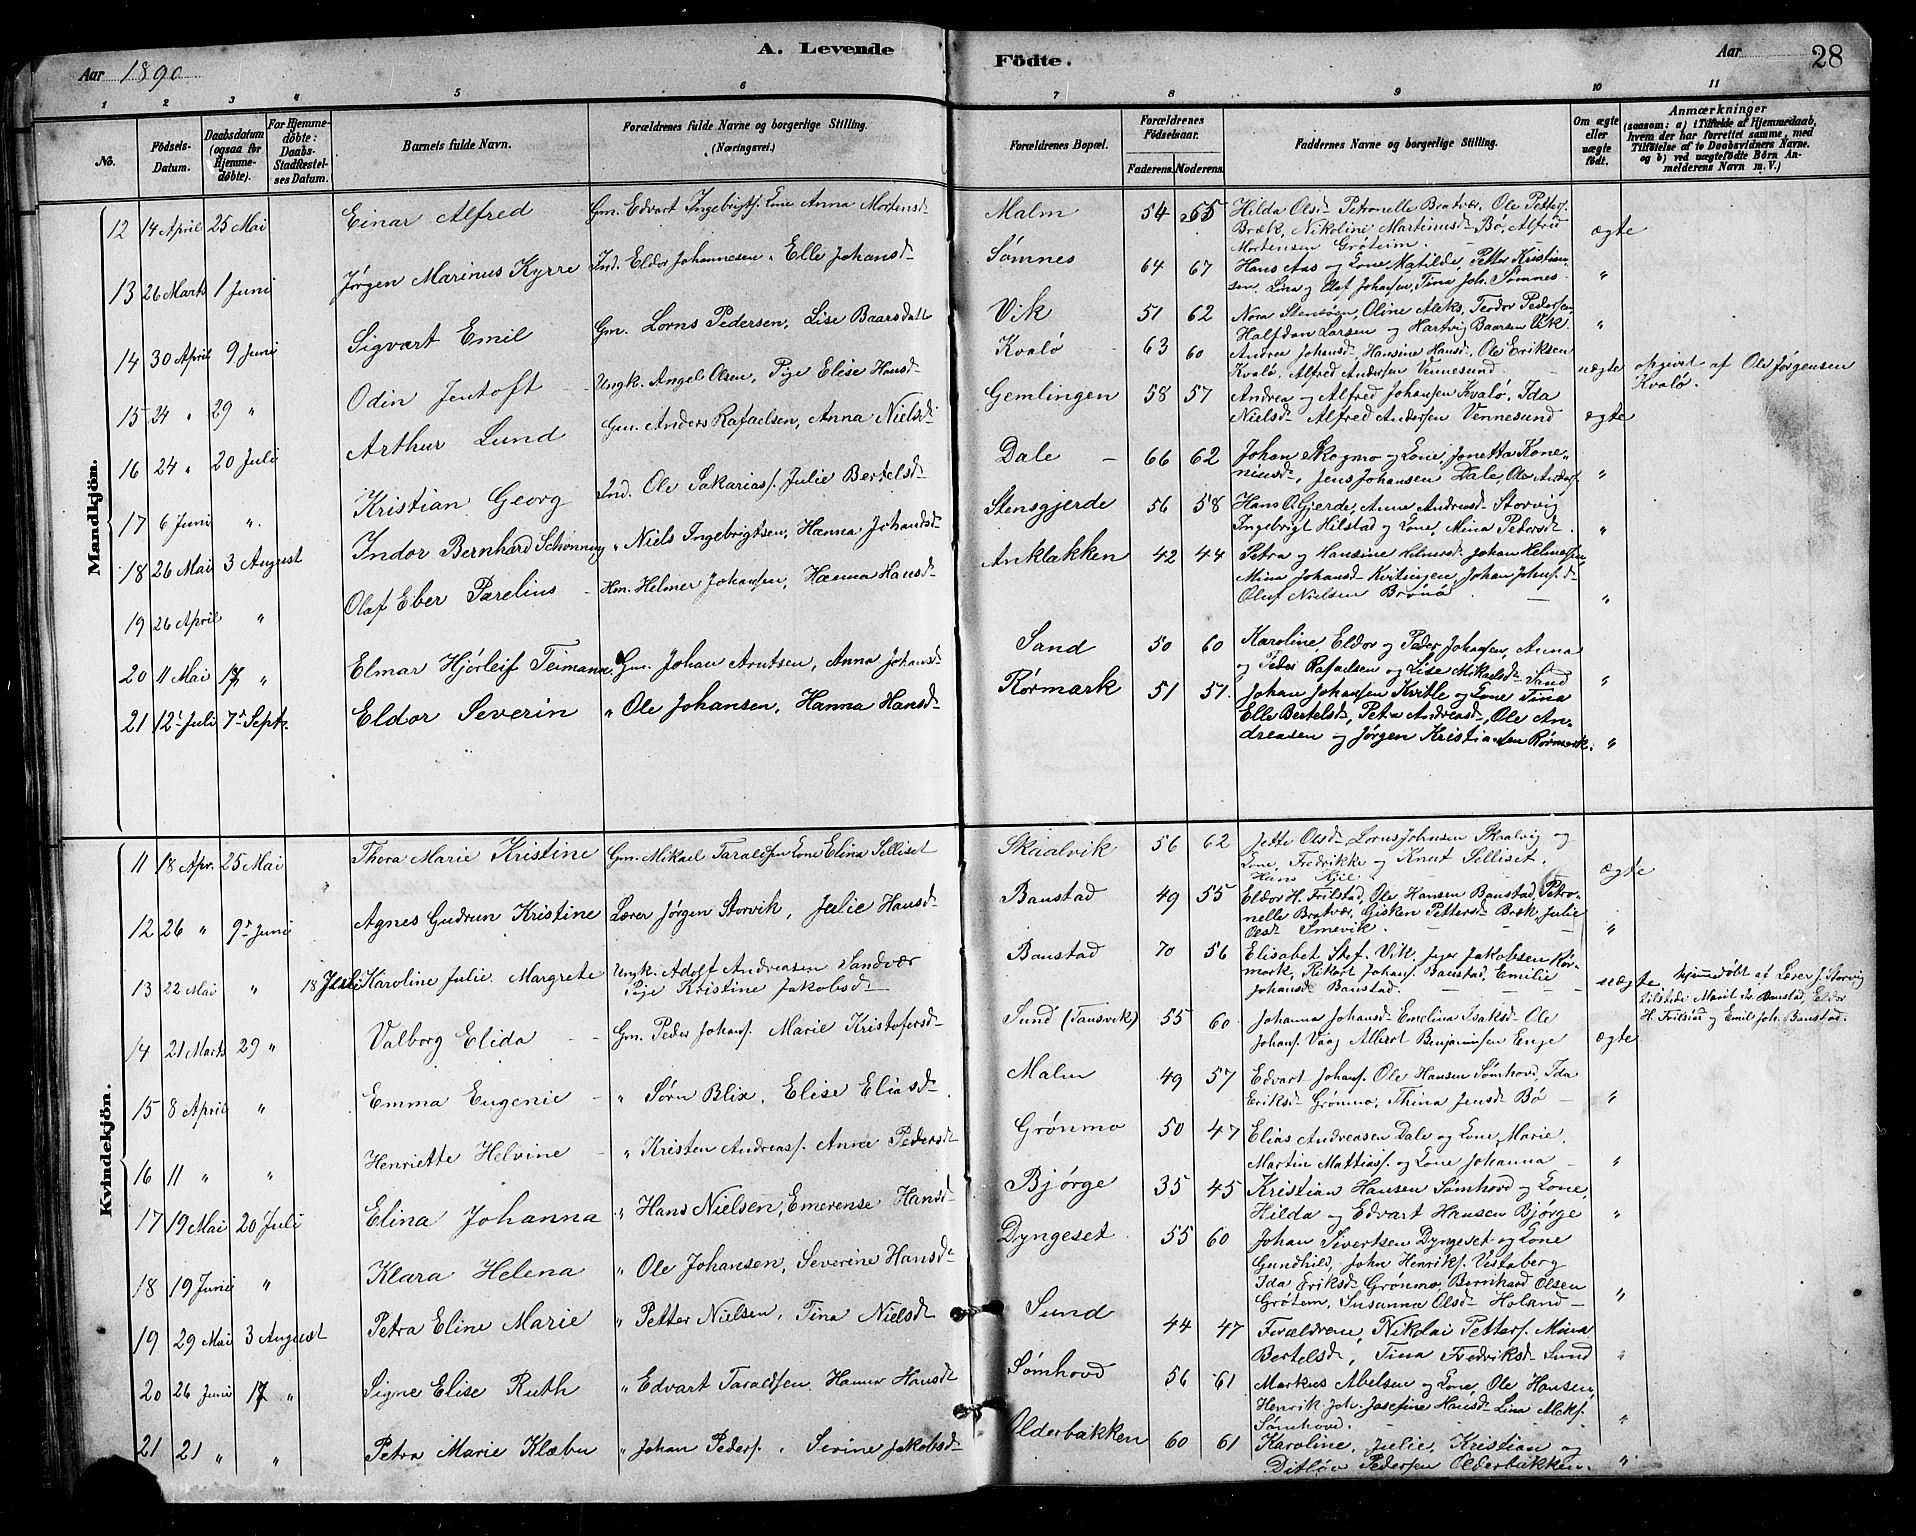 A. Levende
Födte.
Aar 1890
Aar
28
1 2 3 4 5 6 7 8 9 10 11
No.
Födsels-Datum.
Daabsdatum (ogsaa for Hjemmedöbte).
For Hjemmedöbte: Daabs-Stadfæstelses Datum.
Barnets fulde Navn.
Forældrenes fulde Navne og borgerlige Stilling. (Næringsvei.)
Forældrenes Bopæl.
Forældrenes Födselsaar.
Faderens. Moderens.
Faddernes Navne og borgerlige Stilling.
Om ægte eller uægte födt.
Anmærkninger
(saasom: a) i Tilfælde af Hjemmedaab, hvem der har forrettet samme, med Tilföielse af to Daabsvidners Navne. og b) ved uægtefödte Börn Anmelderens Navn m. V.)
Mandkjön.
12 14 April 25 Mai Einar Alfred Gm. Edvart Ingebrigts. Kone Anna Mortensd Malm 54 55 Hilda Olsd Petronelle Bratvær, Ole Petters.
Bræk, Nikoline Martinusd Bö, Alfred
Mortensen Gröteim. ægte
13 26 Marts 1 Juni Jörgen Marinus Kyrre Ind. Eldor Johannesen, Elle Johansd Sömnes 64 67 Hans Aas og Kone Matilde, Petter Kristian-
sen, Lina og Olaf Johansen, Tina Joh. Sömnes. "
14 30 April 9 Juni Sigvart Emil Gm. Lorns Pedersen, Lise Baarsdatt Vik 51 62 Nora Stensöen, Oline Aleks, Teodor Pedersen
Halfdan Larsen og Hartvig Baarsen Vik. "
15 24 " 29 " Odin Jentoft Ungk. Angel Olsen, Pige Elise Hansd Kvalö 63 60 Andrea Johansd Hansine Hansd, Ole Eriksen
Kvalö, Alfred Andersen Vennesund uægte opgivet af Ole Jörgensen
Kvalö.
16 24 " 20 Juli Arthur Lund Gm. Anders Rafaelsen, Anna Nielsd Gemlingen 58 57 Andrea og Alfred Johansen Kvalö, Ida
Nielsd Alfred Andersen Vennesund ægte
17 6 Juni " Kristian Georg Ind. Ole Sakarias. Julie Bertelsd Dale 66 62 Johan Skogmo og Kone, Jonetta Kone-
niusd, Jens Johansen Dale, Ole Anders. "
18 26 Mai 3 August Indor Bernhard Schönning " Niels Ingebrigtsen, Hanna Johansd Stensgjerde 56 58 Hans O. Gjerde, Anne Andreasd Storvig
Ingebrigt Hilstad og Kone, Mina Pedersd "
19 26 April " Olaf Eber Parelius Hm. Helmer Johansen, Hanna Hansd Anklakken 42 44 Petra og Hansine Helmersd Johan Helmersen,
Mina Johansd Kvitingen, Johan Johns. d
Oluf Nielsen Brönö "
20 11 Mai 17 " Elmar Hjörleif Teimann. Gm. Johan Arntsen, Anna Johansd Sand 50 60 Karoline, Eldor og Peder Johansen, Anna
og Peder Rafaelsen og Lise Mikaelsd Sand "
21 12 Juli 7 Septr. Eldor Severin " Ole Johansen, Hanna Hansd Rörmark 51 51. Johan Johansen Kvitle og Kone Tina
Elle Bertelsd, Petra Andreasd, Ole An-
dreasen og Jörgen Kristiansen Rörmark. "
Kvindekjön.
11 18 Apr. 25 Mai Thora Marie Kristine Gm. Mikael Taraldsen Kone Elina Selliset Skaalvik 56 62 Jette Olsd Lorns Johnsen Skralvig og
Kone, Fredrikke og Knut Selliset.
Hans ægte
12 26 " 9 Juni Agnes Gudrun Kristine Lærer Jörgen Storvik, Julie Hansd Baustad 49 55 Eldor H. Frilstad, Ole Hansen Baustad, Petro-
nelle Bratvær, Gisken Pettersd Bræk, Julie
Olsd Smevik. "
13 22 Mai " 18 Juli Karoline Julie Margrete Ungk. Adolf Andreasen Sandvær
Pige Kristine Jakobsd Baustad 70 56 Elisabet Stef. Vik, Jeger Jakobsen Rör-
mark, Rikoft Johans. Baustad, Emilie
Johansd Baustad. uægte, hjemmedöbt af Lærer J. Storvig
tilstede Marit Baustad, Eldor
H. Frilstad og Emil Joh. Baustad.
14 21 Marts 29 " Valborg Elida Gm. Peder Johans. Marie Kristofersd Sund (Tansvik) 55 60 Johanna Johansd Emelina Isaksd Ole
Johans. Vaag Albert Benjaminsen Enge ægte
15 8 April " Emma Eugenie " Sörn Blix, Elise Eliasd Malm 49 57 Edvart Johans. Ole Hansen Sömhovd, Ida
Eriksd Grönmo, Thina Jensd Bö "
16 11 " " Henriette Helvine " Kristen Andreas. Anne Pedersd Grönmo 50 47 Elias Andreasen Dale og Kone Marie,
Martin Mattias. og Kone Johanna "
17 19 Mai 20 Juli Elina Johanna " Hans Nielsen, Emerense Hansd Björge 35 45 Kristian Hansen Sömhovd og Kone,
Hilda og Edvart Hansen Björge "
18 19 Juni " Klara Helena " Ole Johansen, Severine Hansd Dyngeset 55 60 Johan Sivertsen Dyngeset og Kone
Gundhild, John Henriks. Vistaberg
Ida Eriksd Grönmo, Bernhard Olsen
Grötem, Susanna Olsd Holand "
19 29 Mai 3 August Petra Eline Marie " Petter Nielsen, Tina Nielsd Sund 44 47 Forældrene, Nikolai Petters. Mina
Bertelsd, Tina Fredriksd Sund "
20 26 Juni 17 " Signe Elise Ruth " Edvart Taraldsen, Hanna Hansd Sömhovd 56 61 Markus Abelsen og Kone, Ole Hansen,
Henrik Joh. Josefine Hansd Lina Aleks.
Sömhovd. "
21 21 " " Petra Marie Klæbu " Johan Peders. , Sevine Jakobsd Olderbakken 60 61 Karoline, Julie, Kristian og
Ditlöv Pedersen Olderbakken. "